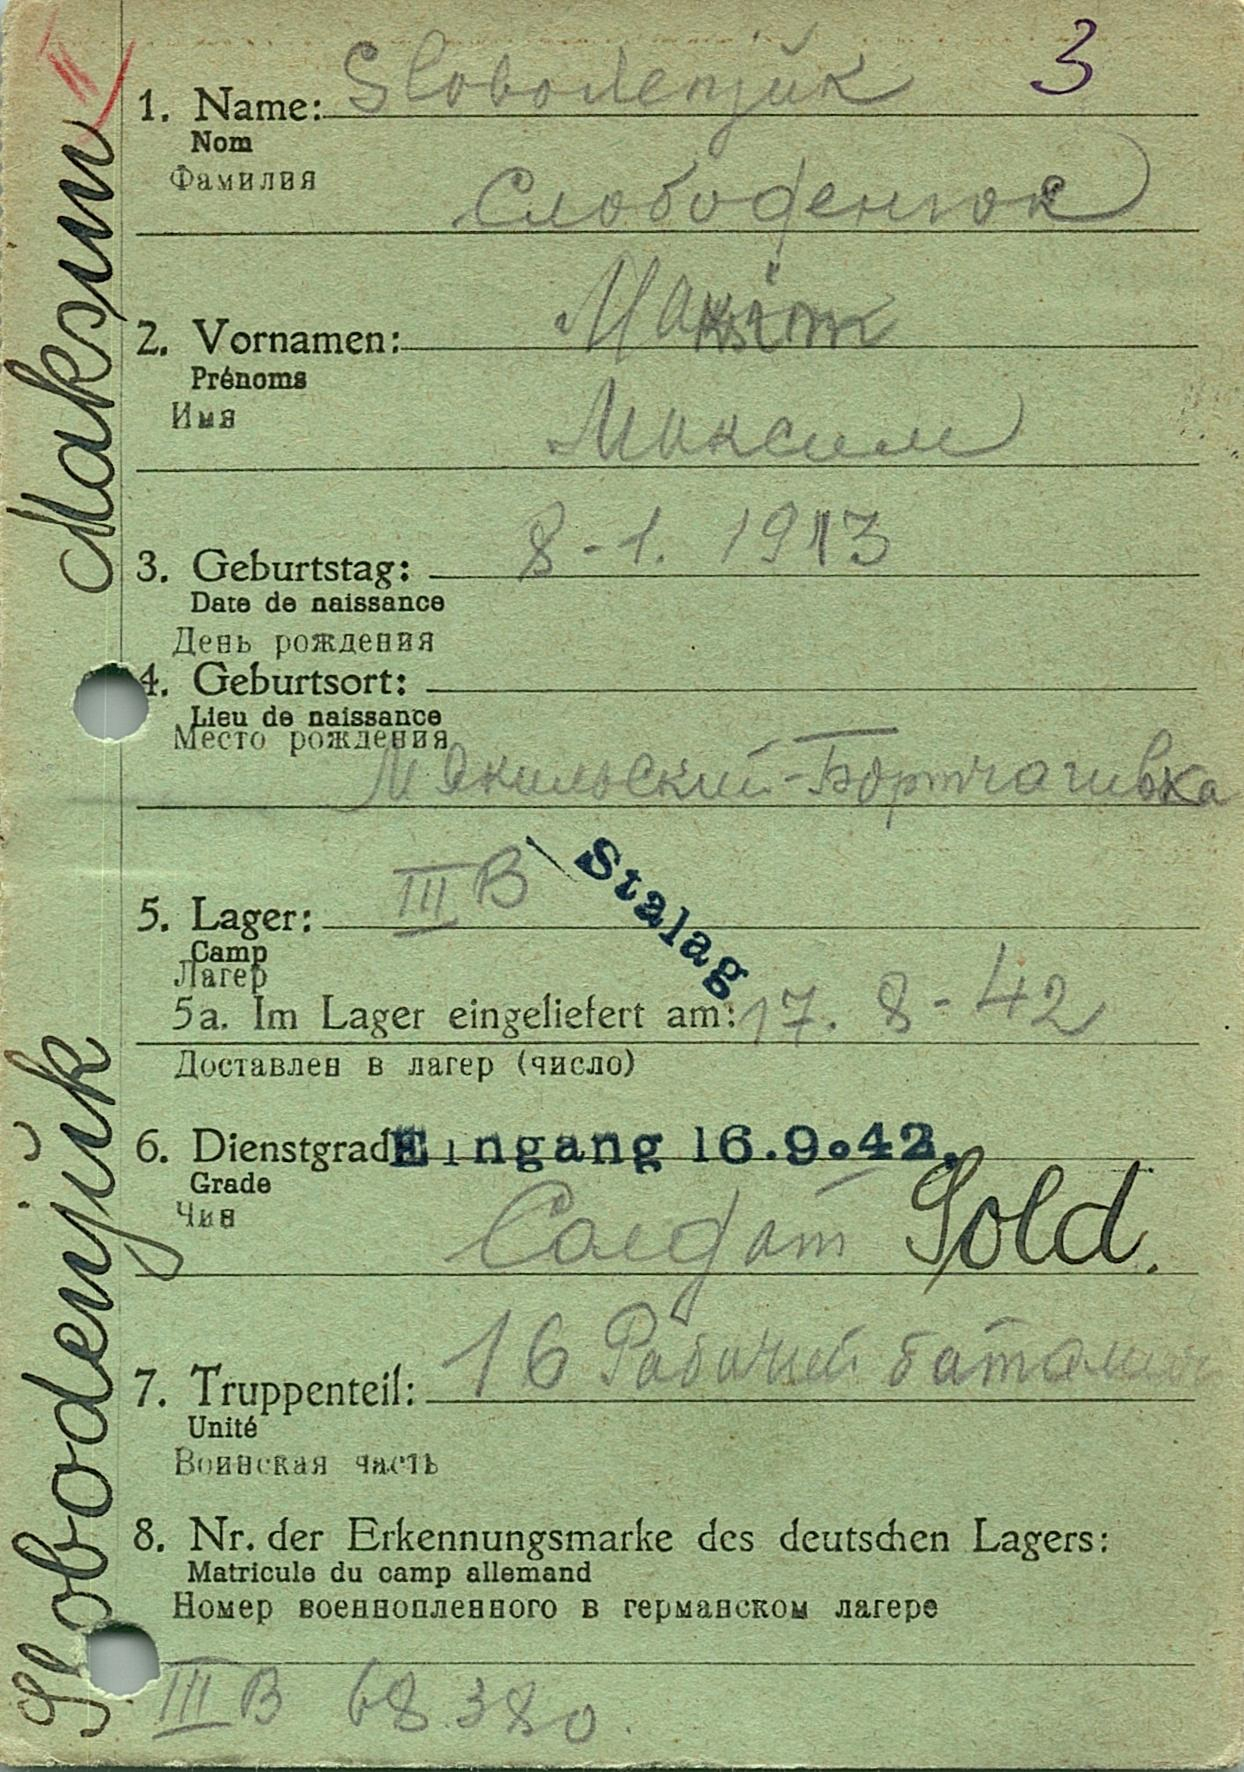 3
1. Name: Slobodenjük
Nom
Фамилия
Слободенюк
2. Vornamen: Maksim
Prénoms
Имя
Максим
3. Geburtstag: 8-1. 1913
Date de naissance
День рождения
4. Geburtsort:
Lieu de naissance
Место рождения
5. Lager: III B Stalag
Camp
Лагер
5a. Im Lager eingeliefert am: 17. 8-42
Доставлен в лагер (число)
6. Dienstgrad Eingang 16.9.42.
Grade
Чин
Солдат Sold.
7. Truppenteil: 16 Рабочий батальон
Unité
Воинская часть
8. Nr. der Erkennungsmarke des deutschen Lagers:
Matricule du camp allemand
Номер военнопленного в германском лагере
III B 68380.
Slobodenjŭk Maksim